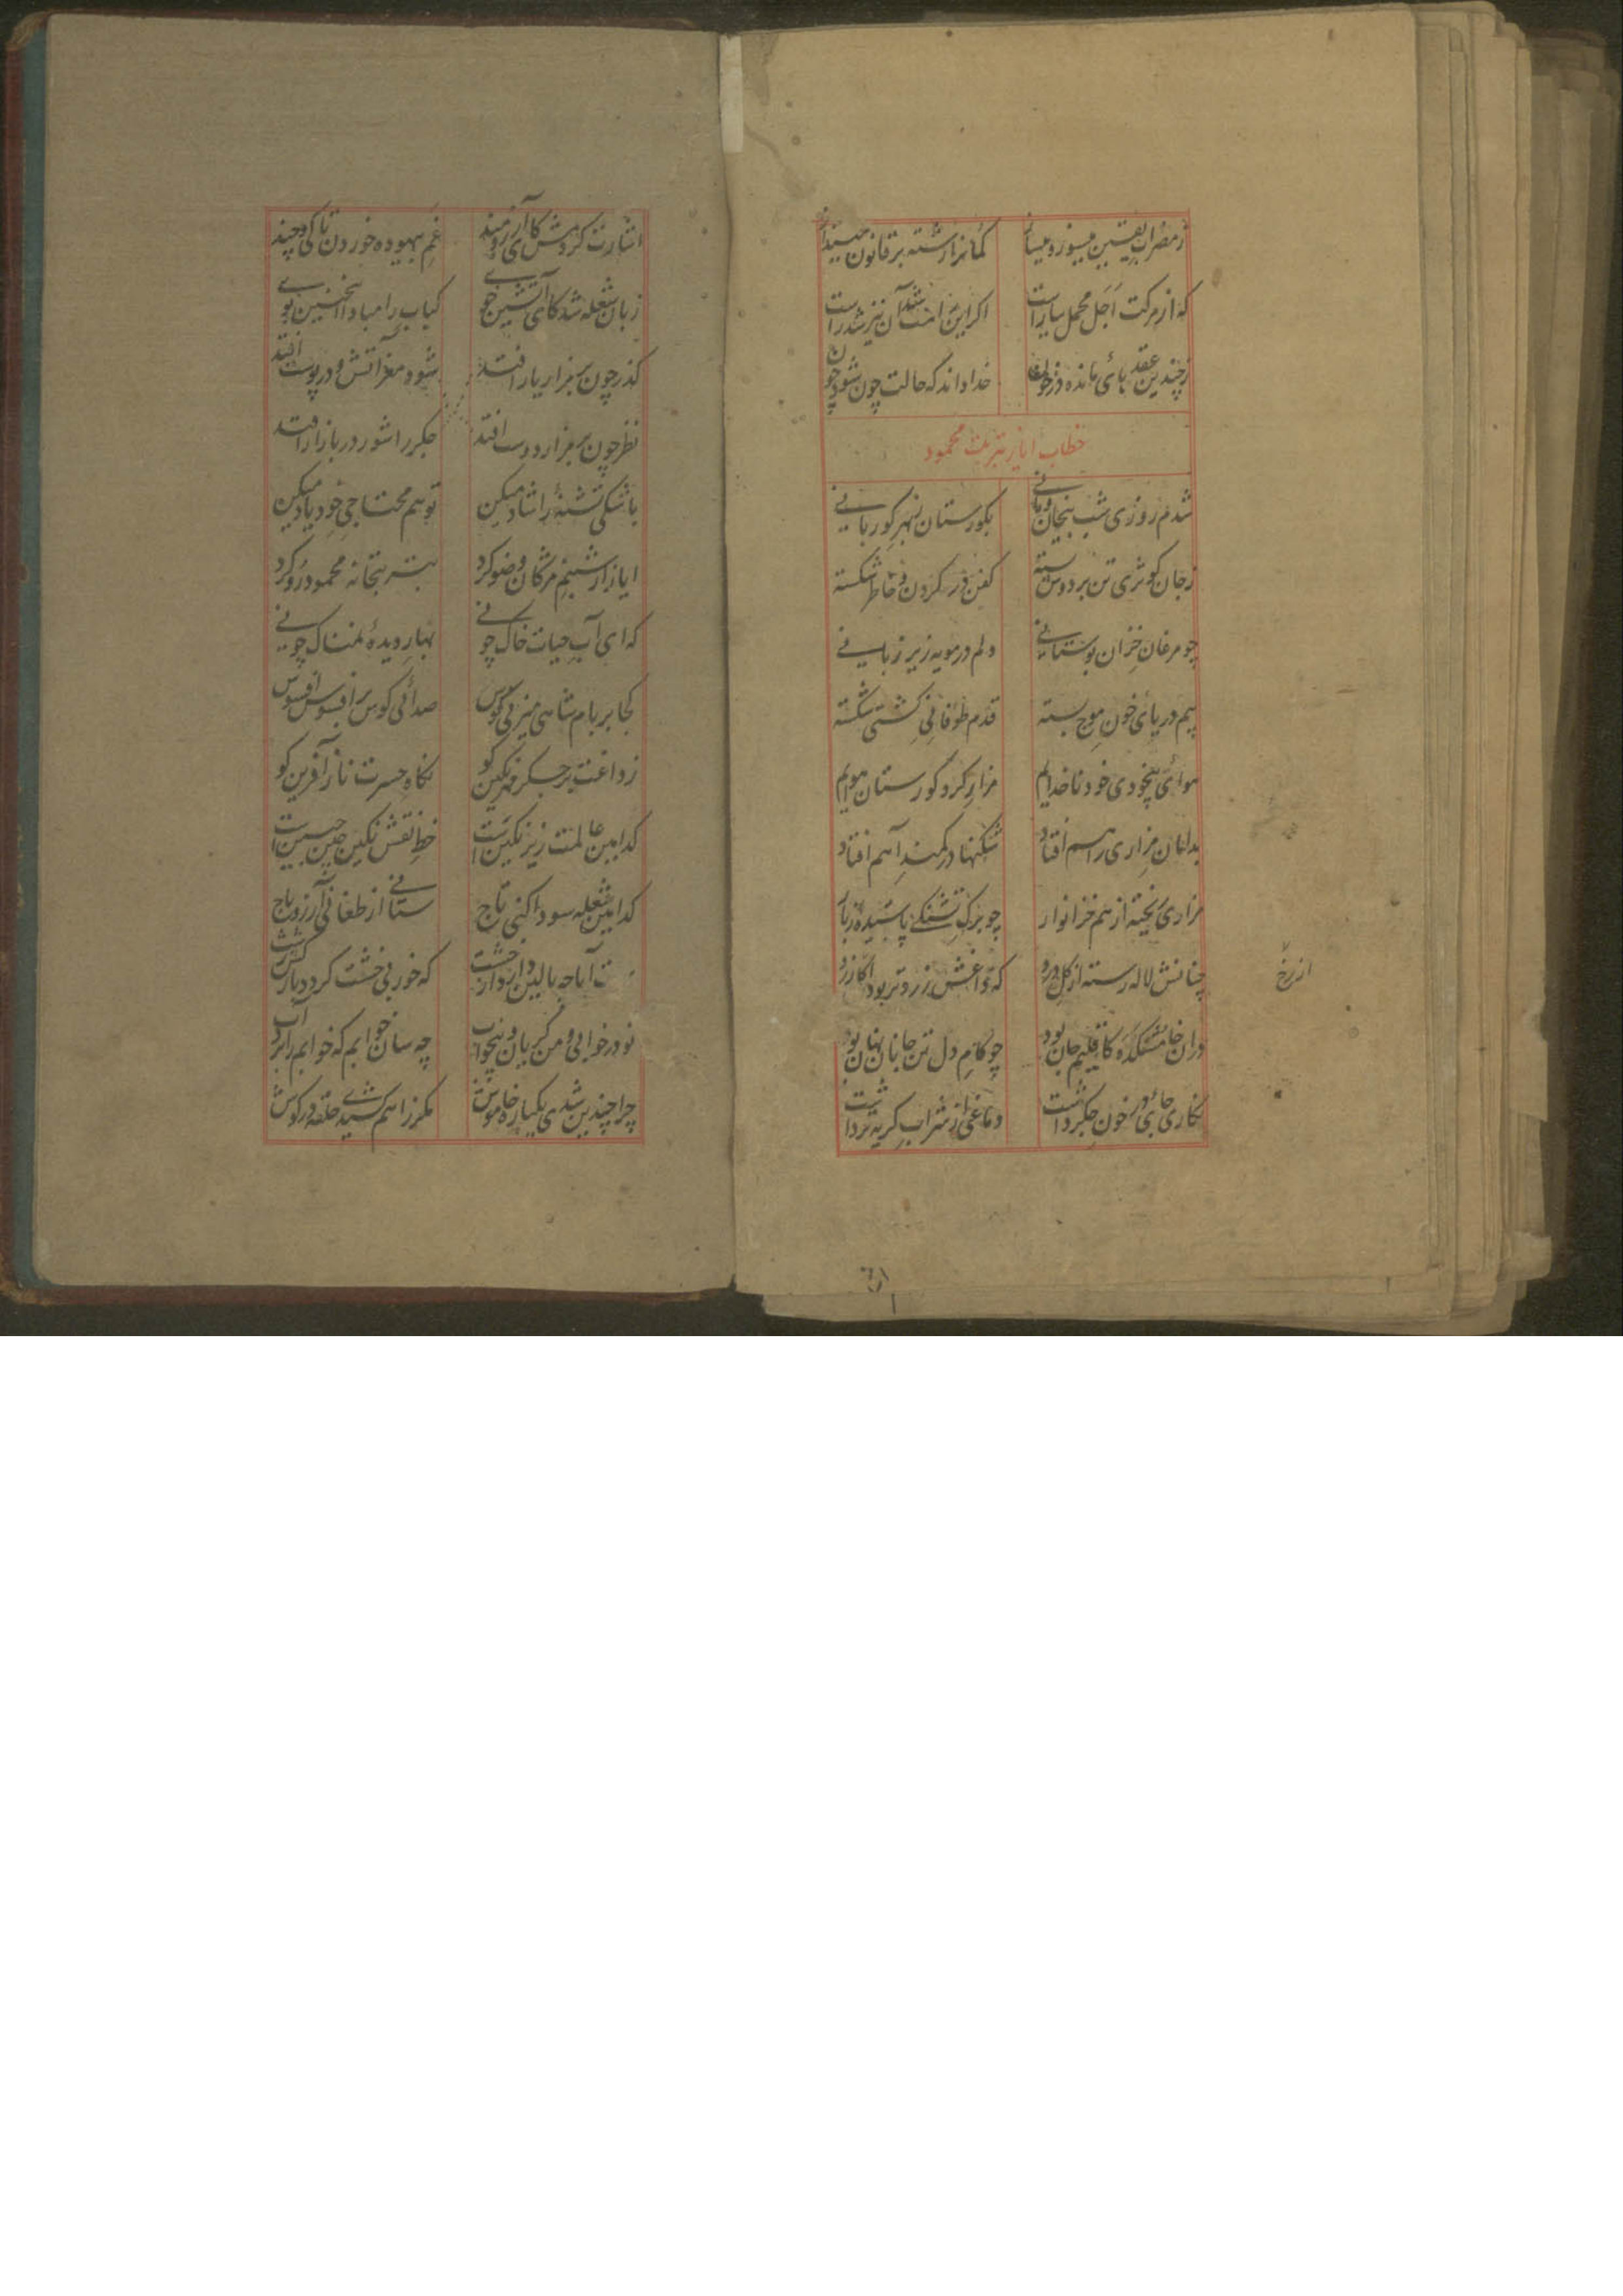 ز مضراب یقین میسوز و میساز گمانرا رشته بر قانون مینداز
که از مرکت اجل محمل بیاراست اکر این راست شد آن نیز شد راست
ز چندین عقد هائی مانده در خدا داند که حالت چون شود چون
خطاب ایاز بتربت محمود
شدم روزی شب بنجان ومانی بکورستان نهر کور بانی
ز جان کوثری تن بر دوش بسته کفن در کردن و خاطر شکسته
چو مرغان خزان بوستانی دلم در مویه زیر زبانی
پیم دریائی خون موج بسته قدم طوفانی کشتی شکسته
هوائی بیخودی خود ناخدایم مزار کرد کورستان هوایم
بدامان مزاری راهم افتاد شکنها در کمند آهم افتاد
مزاری ریخته از هم خزانوار چو برک تشنکی پاشیده از بار
چنانش لاله رسته از کل درد که داغش زرد تر بود از کل زرد
در آن خامشکده کاقلیم جان بود چو کام دل تن جانان نهان بود
نکاری جائی در خون جکر داشت دماغی از شراب کریه تر داشت
از رخ
اشارت کردمش کای آرزومند غم بیهوده خوردن تا کی و چند
زبان شعله شد کای آتشین خوی کباب را مباد اینچنین بوی
کذر چون بر مزار یار افتد شود مغز آتش و در پوست افتد
نظر چون بر مزار دوست افتد جکر را شور در بازار افتد
باشکی تشنهٔ را شاد میکن تو هم محتاجی خود یاد میکن
ایاز از شبنم مژکان وضو کرد بتربتخانه محمود رو کرد
که ای آب حیات خاک چونی بهار دیدهٔ نمناک چونی
کجا بر بام شاهی میزنی کوس صدائی کوس بر افسوس افسوس
ز داغت بر جکر مهر نکین کو نکاه حسرت ناز آفرین کو
کدامین عالمت زیر نکین است خط نقش نکین چین جبین است
کدامین شعله سودا کنی تاج ستانی از طغانی آرزو باج
که خور بی خشت کردد بارکش
تو در خوابی و من کریان و بیخواب چه سان خوابم که خوابم را برد آب
چرا چندین شدی یکباره خاموش مکرز اهم کشیدی حلقه در کوش